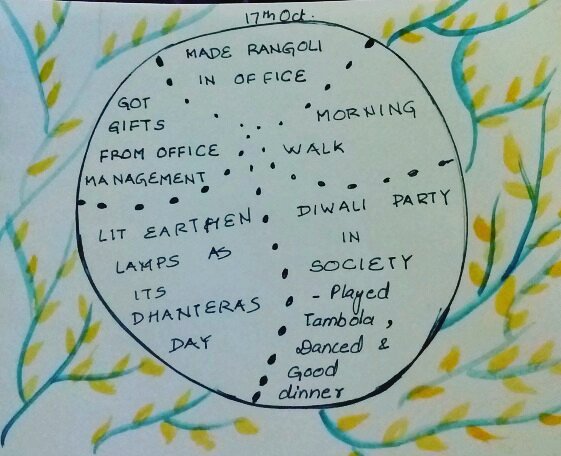 17th Oct.
MADE RANGOLI
IN OFFICE
MORNING
WALK
GOT
GIFTS
FROM OFFICE
MANAGEMENT
LIT EARTHEN
LAMPS AS
ITS
DHANTERAS
DAY
DIWALI PARTY
IN
SOCIETY
- Played
Tambola,
Danced &
Good
dinner